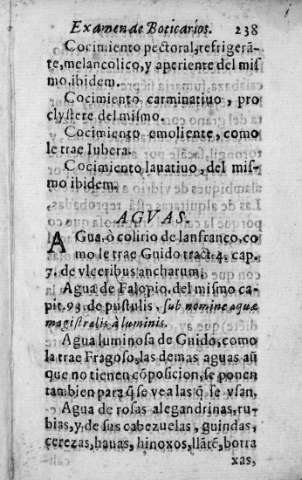 Examen de Boticarios. 238
Cocimiento pectoral, refrigerã-
te, melancolico, y aperiente del mis
mo, ibidem.
Cocimiento carminatiuo, pro
clystere del mismo.
Cocimiento emoliente, como
le trae Iubera.
Cocimiento lauatiuo, del mis-
mo ibidem.
AGVAS.
AGua, ò colirio de lanfranco, co
mo le trae Guido tract. 4. cap.
7. de vlceribus ancharum.
Agua de Falopio, del mismo ca-
pit. 93. de pustulis, sub nomine aquæ
magistralis à luminis.
Agua luminosa de Guido, como
la trae Fragoso, las demas aguas aũ
que no tienen cõposicion, se ponen
tambien para q̃ se vea las q̃ se vsan.
Agua de rosas alegandrinas, ru-
bias, y de sus cabezuelas, guindas,
cerezas, hauas, hinoxos, llãtẽ, borra
xas,